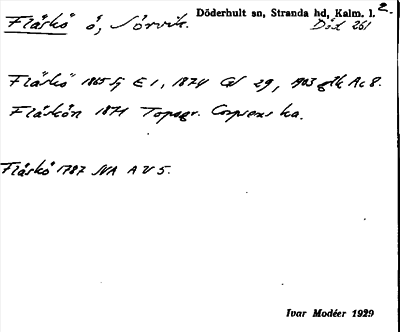 Fläskö ö, Sörvik. Döderhult sn, Stranda hd, Kalm. l. 2.
Död 261
Fläskö 1865 E 1, 1874 29, 1903 glk Ac 8.
Fläskön 1871 Topogr. Corpsens ka.
Fläskö 1787 NA A V 5.
Ivar Modéer 1929